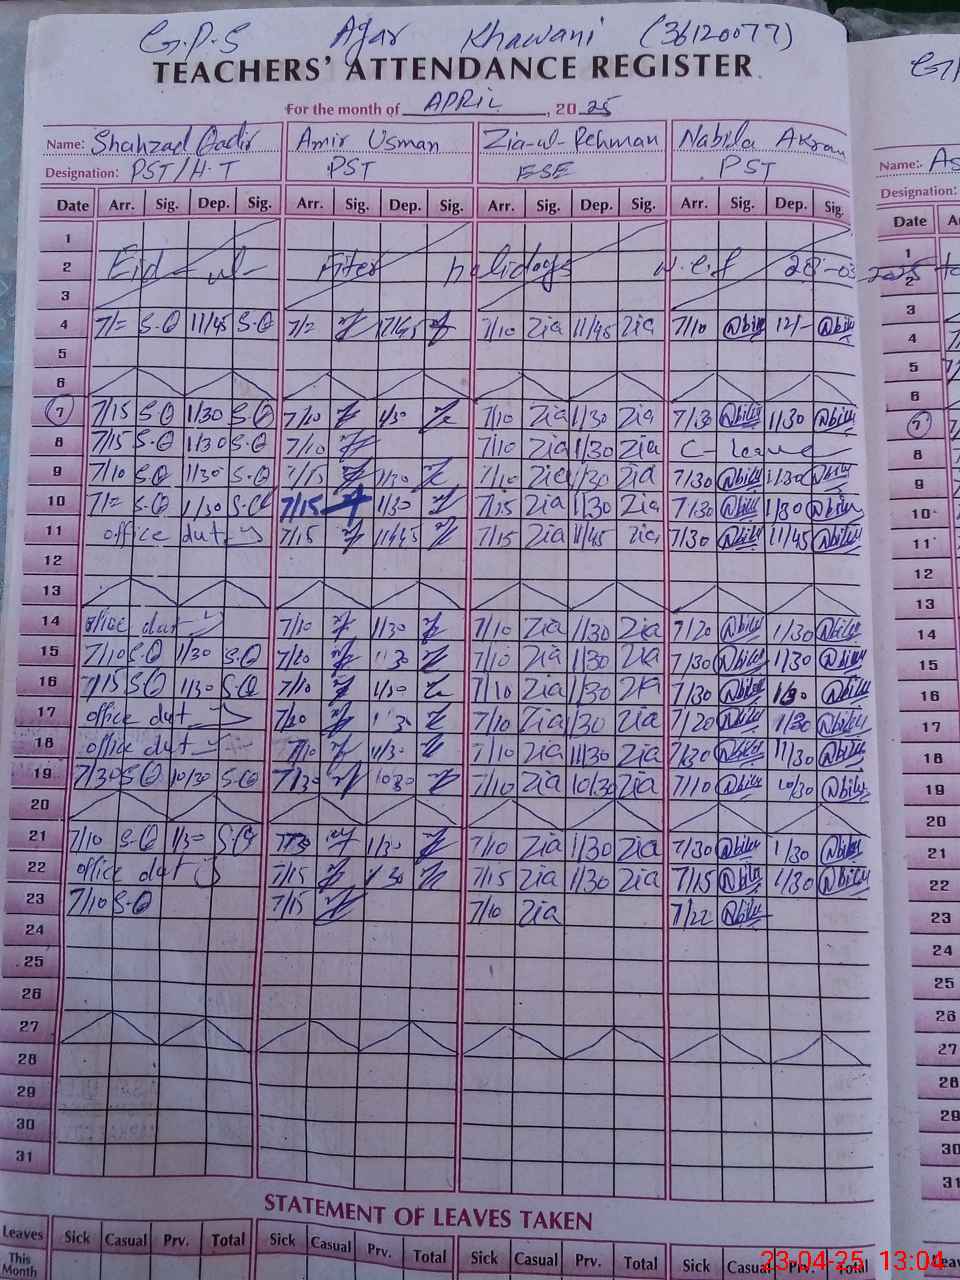 G.P.S Afar Khawani (36120077)
TEACHERS' ATTENDANCE REGISTER
For the month of APRIL, 2025
Name: Shahzad Qadir Amir Usman Zia-ul-Rehman Nabila Akram Name:- As
Designation: PST/H.T PST ESE PST Designation:
Date Arr. Sig. Dep. Sig. Arr. Sig. Dep. Sig. Arr. Sig. Dep. Sig. Arr. Sig. Dep. Sig. Date
1 1
2 Eid-ul-Fiter holidays w.e.f 28-03-2025 to 2
3 3
4 7/= S.Q 11/45 S.Q 7/10 Zia 11/45 Zia 7/10 Nbila 12/- Nbila 4
5 5
6 6
7 7/15 S.Q 1/30 S.Q 7/20 1/30 7/10 Zia 1/30 Zia 7/30 Nbila 1/30 Nbila 7
8 7/15 S.Q 1/30 S.Q 7/10 7/10 Zia 1/30 Zia C-leave 8
9 7/10 S.Q 1/30 S.Q 7/15 1/30 7/10 Zia 1/30 Zia 7/30 Nbila 1/30 Nbila 9
10 7/= S.Q 1/30 S.Q 7/15 1/30 7/15 Zia 1/30 Zia 7/30 Nbila 1/30 Nbila 10
11 office duty 7/15 11/45 7/15 Zia 11/45 Zia 7/30 Nbila 11/45 Nbila 11
12 12
13 13
14 office duty 7/10 1/30 7/10 Zia 1/30 Zia 7/20 Nbila 1/30 Nbila 14
15 7/10 S.Q 1/30 S.Q 7/20 1/30 7/10 Zia 1/30 Zia 7/30 Nbila 1/30 Nbila 15
16 7/15 S.Q 1/30 S.Q 7/10 1/30 7/10 Zia 1/30 Zia 7/30 Nbila 1/30 Nbila 16
17 office duty 7/20 1/30 7/10 Zia 1/30 Zia 7/20 Nbila 1/30 Nbila 17
18 office duty 7/10 11/30 7/10 Zia 11/30 Zia 7/30 Nbila 11/30 Nbila 18
19 7/30 S.Q 10/30 S.Q 7/30 10/30 7/10 Zia 10/30 Zia 7/10 Nbila 10/30 Nbila 19
20 20
21 7/10 S.Q 1/30 S.Q 1/30 7/10 Zia 1/30 Zia 7/30 Nbila 1/30 Nbila 21
22 office duty 7/15 1/30 7/15 Zia 1/30 Zia 7/15 Nbila 1/30 Nbila 22
23 7/10 S.Q 7/15 7/10 Zia 7/22 Nbila 23
24 24
25 25
26 26
27 27
28 28
29 29
30 30
31 31
STATEMENT OF LEAVES TAKEN
Leaves Sick Casual Prv. Total Sick Casual Prv. Total Sick Casual Prv. Total Sick Casual Prv. Total
This Month
23-04-25 13:04